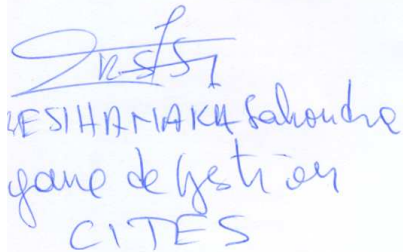 RESIHAMAKA Sahondra
gane de Gestion
CITES